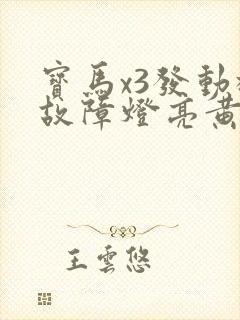 寶馬x3發動
故障燈亮黃
王雲悠